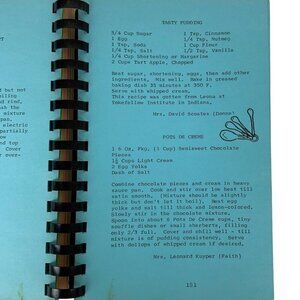 TASTY PUDDING
3/4 Cup Sugar 1 Tsp. Cinnamon
1 Egg 1/4 Tsp. Nutmeg
1 Tsp. Soda 1 Cup Flour
1/4 Tsp. Salt 1/2 Tsp. Vanilla
1/4 Cup Shortening or Margarine
2 Cups Tart Apple, Chopped
Beat sugar, shortening, eggs, then add other
ingredients. Mix well. Bake in greased
baking dish 35 minutes at 350 F.
Serve with whipped cream.
This recipe was gotten from Leona at
Yokefellow Institute in Indiana.
Mrs. David Scoates (Donna)
POTS DE CREME
1 6 Oz. Pkg. (1 Cup) Semisweet Chocolate
Pieces
1¼ Cups Light Cream
2 Egg Yolks
Dash of Salt
Combine chocolate pieces and cream in heavy
sauce pan. Cook and stir over low heat till
satin smooth. (Mixture should be slightly
thick but don't let it boil). Beat egg
yolks and salt till thick and lemon-colored.
Slowly stir in the chocolate mixture.
Spoon into about 6 Pots De Creme cups, tiny
souffle dishes or small sherbets, filling
only 2/3 full. Cover and chill well - till
mixture is of pudding consistency. Serve
with dollops of whipped cream if desired.
Mrs. Leonard Kuyper (Faith)
151
but not
oiling
nd rind,
h the
pan.
electric
partially
own
nd top
Cover
over-